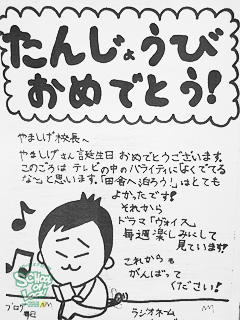 たんじょうび
おめでとう!
やましげ校長へ
やましげさん誕生日おめでとうございます。
このごろはテレビの中のバラエティによくでてる
な〜と思います。「田舎へ泊ろう!」はとても
よかったです!
それから
ドラマ「ヴォイス」
毎週楽しみにして
見ています!
これからも
がんばって
ください!
ブログ
ラジオネーム